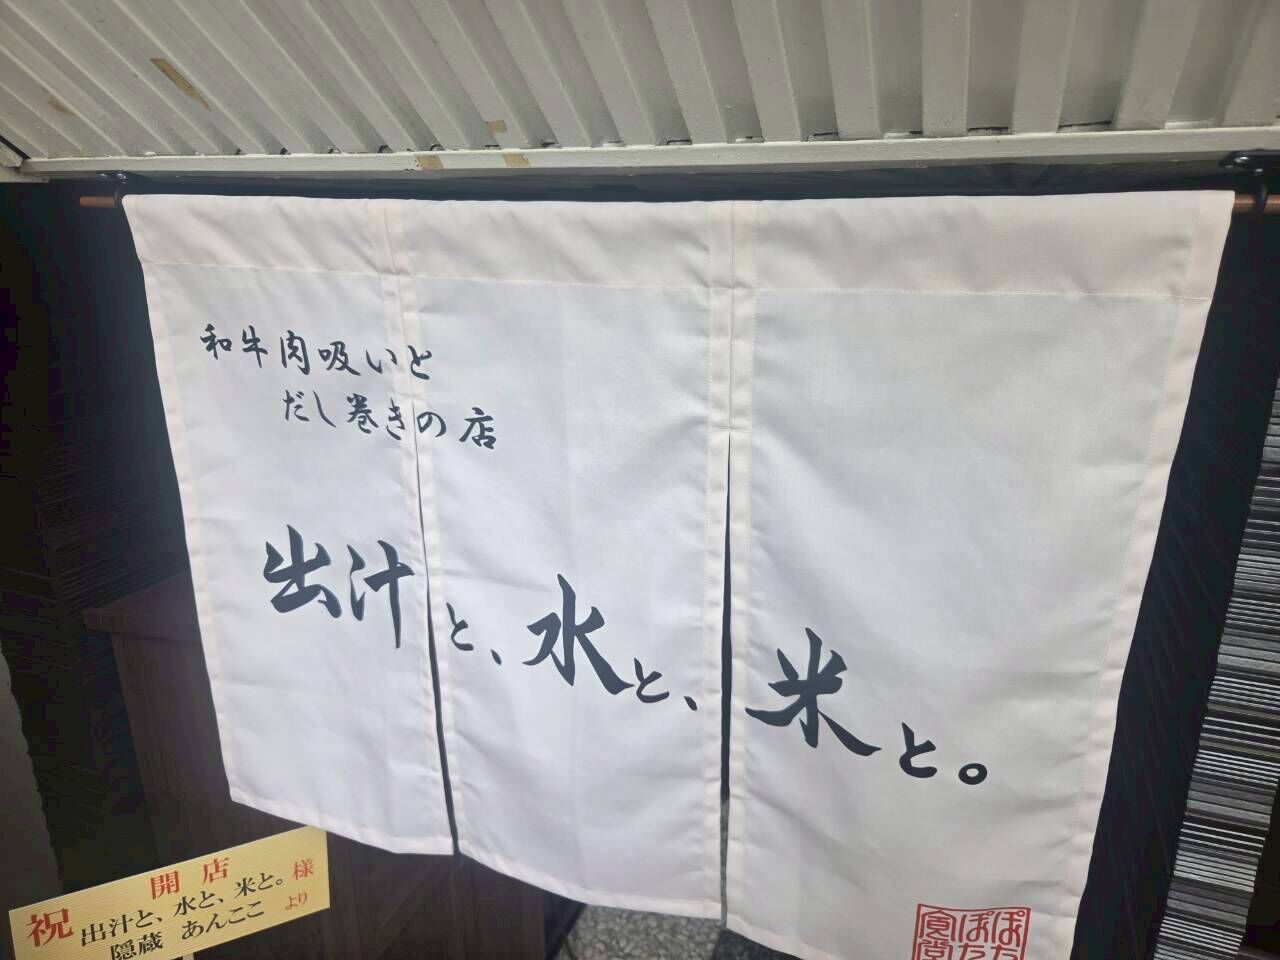 和牛肉吸いと
だし巻きの店
出汁と、水と、米と。
祝 開店
出汁と、水と、米と。様
隠蔵 あんここ より
ぽたぽた
食堂